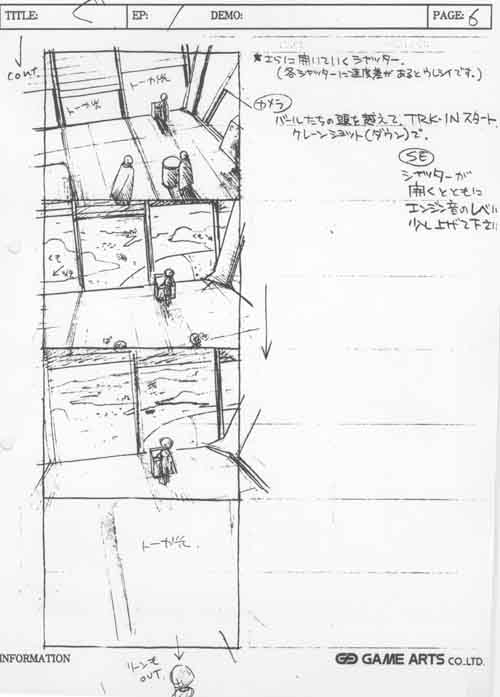 TITLE:
EP:
DEMO:
PAGE: 6
cont.
*さらに開いていくシャッター。
(各シャッターに速度差があるとウレシイです。)
トーカ光
トーカ光
カメラ
パールたちの頭を越えて、TRK-INスタート
クレーンショット(ダウン)で。
SE
シャッターが
開くとともに
エンジン音のレベル
少し上げて下さい
トーカ光。
INFORMATION
GAME ARTS CO.,LTD.
OUT.